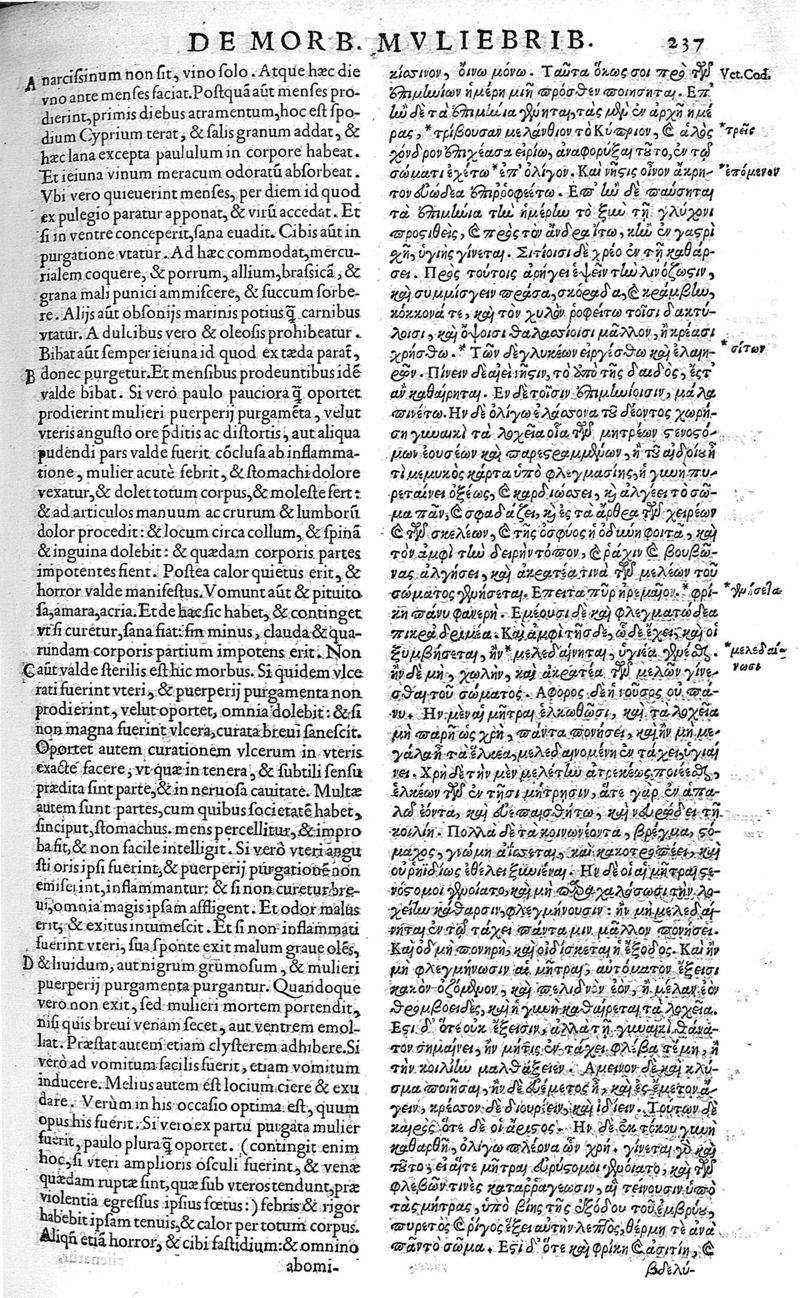 DE MORB. MVLIEBRIB. 237
A narcissinum non sit, vino solo. Atque hæc die
vno ante menses faciat. Postquā aūt menses pro-
dierint, primis diebus atramentum, hoc est spo-
dium Cyprium terat, & salis granum addat, &
hæc lana excepta paululum in corpore habeat.
Et ieiuna vinum meracum odoratū absorbeat.
Vbi vero quieuerint menses, per diem id quod
ex pulegio paratur apponat, & virū accedat. Et
si in ventre conceperit, sana euadit. Cibis aūt in
purgatione vtatur. Ad hæc commodat, mercu-
rialem coquere, & porrum, allium, brassicā, &
grana mali punici ammiscere, & succum sorbe-
re. Alijs aūt obsonijs marinis potius q̄ carnibus
vtatur. A dulcibus vero & oleosis prohibeatur.
Bibat aūt semper ieiuna id quod ex tæda parat̃,
B donec purgetur. Et mensibus prodeuntibus idē
valde bibat. Si verò paulo pauciora q̄ oportet
prodierint mulieri puerperij purgamēta, velut
vteris angusto ore p̄ditis ac distortis, aut aliqua
pudendi pars valde fuerit cōclusa ab inflamma-
tione, mulier acutè febrit, & stomachi dolore
vexatur, & dolet totum corpus, & moleste fert:
& ad articulos manuum ac crurum & lumborū
dolor procedit: & locum circa collum, & spinā
& inguina dolebit: & quædam corporis partes
impotentes fient. Postea calor quietus erit, &
horror valde manifestus. Vomunt aūt & pituito
sa, amara, acria. Et de hac sic habet, & continget
vt si curetur, sana fiat: sin minus, clauda & qua-
rundam corporis partium impotens erit. Non
C aūt valde sterilis est hic morbus. Si quidem vlce
rati fuerint vteri, & puerperij purgamenta non
prodierint, velut oportet, omnia dolebit: & si
non magna fuerint vlcera, curata breui sanescit.
Oportet autem curationem vlcerum in vteris
exacte facere, vt quæ in tenera, & subtili sensu
prædita sint parte, & in neruosa cauitate. Multæ
autem sunt partes, cum quibus societatē habet,
sinciput, stomachus. mens percellitur, & impro
ba fit, & non facile intelligit. Si verò vteri angu
sti oris ipsi fuerint, & puerperij purgationē non
emiserint, inflammantur: & si non curetur bre-
ui, omnia magis ipsam affligent. Et odor malus
erit, & exitus intumescit. Et si non inflammati
fuerint vteri, sua sponte exit malum graue olēs,
D & liuidum, aut nigrum grumosum, & mulieri
puerperij purgamenta purgantur. Quandoque
vero non exit, sed mulieri mortem portendit,
nisi quis breui venam secet, aut ventrem emol-
liat. Præstat autem etiam clysterem adhibere. Si
verò ad vomitum facilis fuerit, etiam vomitum
inducere. Melius autem est lotium ciere & exu
dare. Verùm in his occasio optima est, quum
opus his fuerit. Si vero ex partu purgata mulier
fuerit, paulo plura q̄ oportet. (contingit enim
hoc, si vteri amplioris osculi fuerint, & venæ
quædam ruptæ sint, quæ sub vteros tendunt, præ
violentia egressus ipsius fœtus:) febris & rigor
habebit ipsam tenuis, & calor per totum corpus.
Aliqñ etiā horror, & cibi fastidium: & omnino
abomi-
κίσσινον, οἴνῳ μόνῳ. Ταῦτα ὅκως σοι πρὸ τῶν Vet. Cod.
ἐπιμηνίων ἡμέρῃ μιῇ πρόσθεν ποιησηται. Ἐπ'
ἢν δὲ τὰ ἐπιμήνια γένηται, τὰς μὲν ἐν ἀρχῇ ἡμέ
ρας, *τρίβουσαν μελάνθιον τὸ Κύπριον, καὶ ἁλὸς *τρεῖς
χόνδρον ἐπιχέασα εἰρίῳ, ἀναφορύξαι τοῦτο, ἐν τῷ
σώματι ἐχέτω *ἐπ' ὀλίγον. Καὶ νῆστις οἶνον ἀκρη- *ἑπόμενον
τον εὐώδεα ἐπιρροφείτω. Ἐπ' ἢν δὲ παύσηται
τὰ ἐπιμήνια τὴν ἡμέρην τὸ ξὺν τῇ γλήχωνι
προστιθεὶς, καὶ πρὸς τὸν ἄνδρα ἴτω, κἢν ἐν γαστρὶ
σχῇ, ὑγιὴς γίνεται. Σιτίοισι δὲ χρέο ἐν τῇ καθάρ-
σει. Πρὸς τούτοις ἀρήγει ἑψεῖν τὴν λινόζωστιν,
καὶ συμμίσγειν πράσα, σκόροδα, καὶ κράμβην,
κόκκονά τε, καὶ τὸν χυλὸν ῥοφείτω τοῖσι δακτύ-
λοισι, καὶ ὄψοισι θαλασσίοισι μᾶλλον, ἢ κρέασι
χρήσθω. *Τῶν δὲ γλυκέων εἰργέσθω καὶ ἐλαιη- *σίτων
ρῶν. Πίνειν δὲ αἰεὶ νῆστιν, τὸ ἀπὸ τῆς δαιδὸς, ἔς τ'
ἂν καθαίρηται. Ἐν δὲ τοῖσιν ἐπιμηνίοισιν, μάλα
πινέτω. Ἢν δὲ ὀλίγῳ ἐλάσσονα τοῦ δέοντος χωρή-
σῃ γυναικὶ τὰ λοχεῖα οἷα τῶν μητρέων στενοστό-
μων ἐουσέων καὶ παρεστραμμένων, ἢ τοῦ αἰδοίου ᾖ
τι μεμυκὸς κάρτα ὑπὸ φλεγμασίης, ἡ γυνὴ πυ-
ρεταίνει ὀξέως, καὶ καρδιώσσει, καὶ ἀλγέει τὸ σῶ-
μα πᾶν, καὶ σφαδάζει, καὶ ἐς τὰ ἄρθρα τῶν χειρέων
καὶ τῶν σκελέων, καὶ τῆς ὀσφύος ἡ ὀδύνη φοιτᾷ, καὶ
τὸν ἀμφὶ τὴν δειρὴν τόπον, καὶ ῥάχιν καὶ βουβῶ-
νας ἀλγήσει, καὶ ἀκρατέα τινὰ τῶν μελέων τοῦ
σώματος γενήσεται. Ἔπειτα πῦρ ἠρεμαῖον. *φρί-
κη πάνυ φανερή. Ἐμέουσι δὲ καὶ φλεγματώδεα
πικρὰ δριμέα. Καὶ ἀμφὶ τῆσδε, ὧδε ἔχει, καὶ οἱ
ξυμβήσεται, ἢν *μελεδαίνηται, ὑγιέα γενέσθαι. *μελεδαί
νωσι
ἢν δὲ μὴ, χωλὴν, καὶ ἀκρατέα τῶν μελῶν γίνε-
σθαι τοῦ σώματος. Ἄφορος δὲ ἡ νοῦσος οὐ πά-
νυ. Ἢν μὲν αἱ μῆτραι ἑλκωθῶσι, καὶ τὰ λοχεῖα
μὴ παρῇ ὡς χρὴ, πάντα πονήσει, καὶ ἢν μὴ με-
γάλα ᾖ τὰ ἕλκεα, μελεδαινομένη ἐν τάχει, ὑγιαί
νει. Χρὴ δὲ τὴν μὲν μελέτην ἀτρεκέως ποιέεσθαι,
ἑλκέων τῶν ἐν τῇσι μήτρῃσιν, ἅτε γὰρ ἐν ἁπα-
λῷ ἐόντα, καὶ εὐεπαισθήτῳ, καὶ νευρώδει τῇ
κοιλίῃ. Πολλὰ δὲ τὰ κοινωνέοντα, βρέγμα, στό-
μαχος, γνώμη ἀΐσσεται, καὶ κακοτροπέει, καὶ
οὐ ῥηϊδίως ἐθέλει ξυνιέναι. Ἢν δὲ οἱ αἱ μῆτραι στε-
νόστομοι γενοίατο, καὶ μὴ παραχαλάσωσι τὴν λο-
χείην κάθαρσιν, φλεγμήνουσιν: ἢν μὴ μελεδαί-
νηται ἐν τῷ τάχει πάντα μιν μᾶλλον πονήσει.
Καὶ ὀδμὴ πονηρή, καὶ οἰδίσκεται ἡ ἔξοδος. Καὶ ἢν
μὴ φλεγμήνωσιν αἱ μῆτραι, αὐτόματον ἔξεισι
κακὸν ὀζόμενον, καὶ πελιδνὸν ἐὸν, ἢ μέλαν ἐὸν
θρομβοειδὲς, καὶ ἡ γυνὴ καθαίρεται τὰ λοχεῖα.
Ἔστι δ' ὅτε οὐκ ἔξεισιν, ἀλλὰ τῇ γυναικὶ θάνα-
τον σημαίνει, ἢν μή τις ἐν τάχει φλέβα τέμῃ, ἢ
τὴν κοιλίην μαλθάξειεν. Ἄμεινον δὲ καὶ κλύ-
σμα ποιῆσαι, ἢν δὲ εὐέμετος ᾖ, καὶ ἐς ἔμετον ἄ-
γειν, κρέσσον δὲ διουρεῖν, καὶ ἰδίειν. Τούτων δὲ
καιρὸς ὅτε δέοι ἄριστος. Ἢν δὲ ἐκ τόκου γυνὴ
καθαρθῇ, ὀλίγῳ πλέονα ὧν χρή. γίνεται γὰρ καὶ
τοῦτο, εἰ αἵ τε μῆτραι εὐρύστομοι γενοίατο, καὶ τῶν
φλεβῶν τινὲς καταρραγέωσιν, αἳ τείνουσιν ὑπὸ
τὰς μήτρας, ὑπὸ βίης τῆς ἐξόδου τοῦ ἐμβρύου,
πυρετὸς καὶ ῥῖγος ἕξει αὐτὴν λεπτὸς, θέρμη τε ἀνὰ
πᾶν τὸ σῶμα. Ἔστι δ' ὅτε καὶ φρίκη καὶ ἀσιτίη, καὶ
βδελύ-